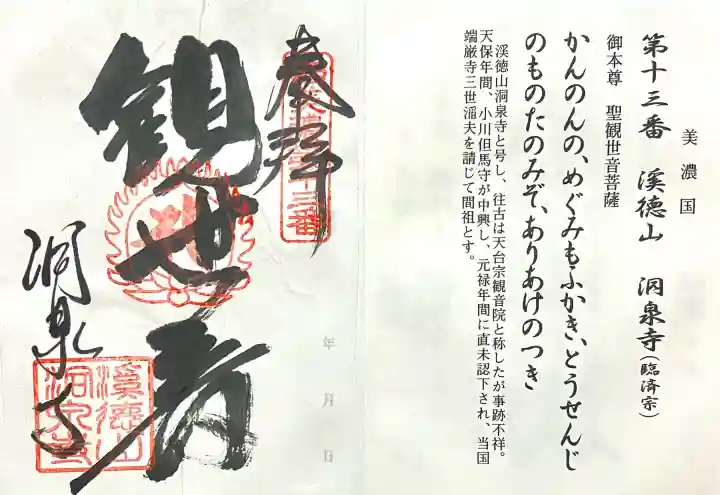 美濃国
第十三番　渓徳山　洞泉寺（臨済宗）
御本尊　聖観世音菩薩
かんのんの、めぐみもふかき、とうせんじ
のものたのみぞ、ありあけのつき
渓徳山洞泉寺と号し、往古は天台宗観音院と称したが事跡不祥。
天保年間、小川但馬守が中興し、元禄年間に直末認下され、当国
端巌寺三世湽夫を請じて開祖とす。
奉拝
十三番
観世音
洞泉寺
年　月　日
渓徳山
洞泉寺